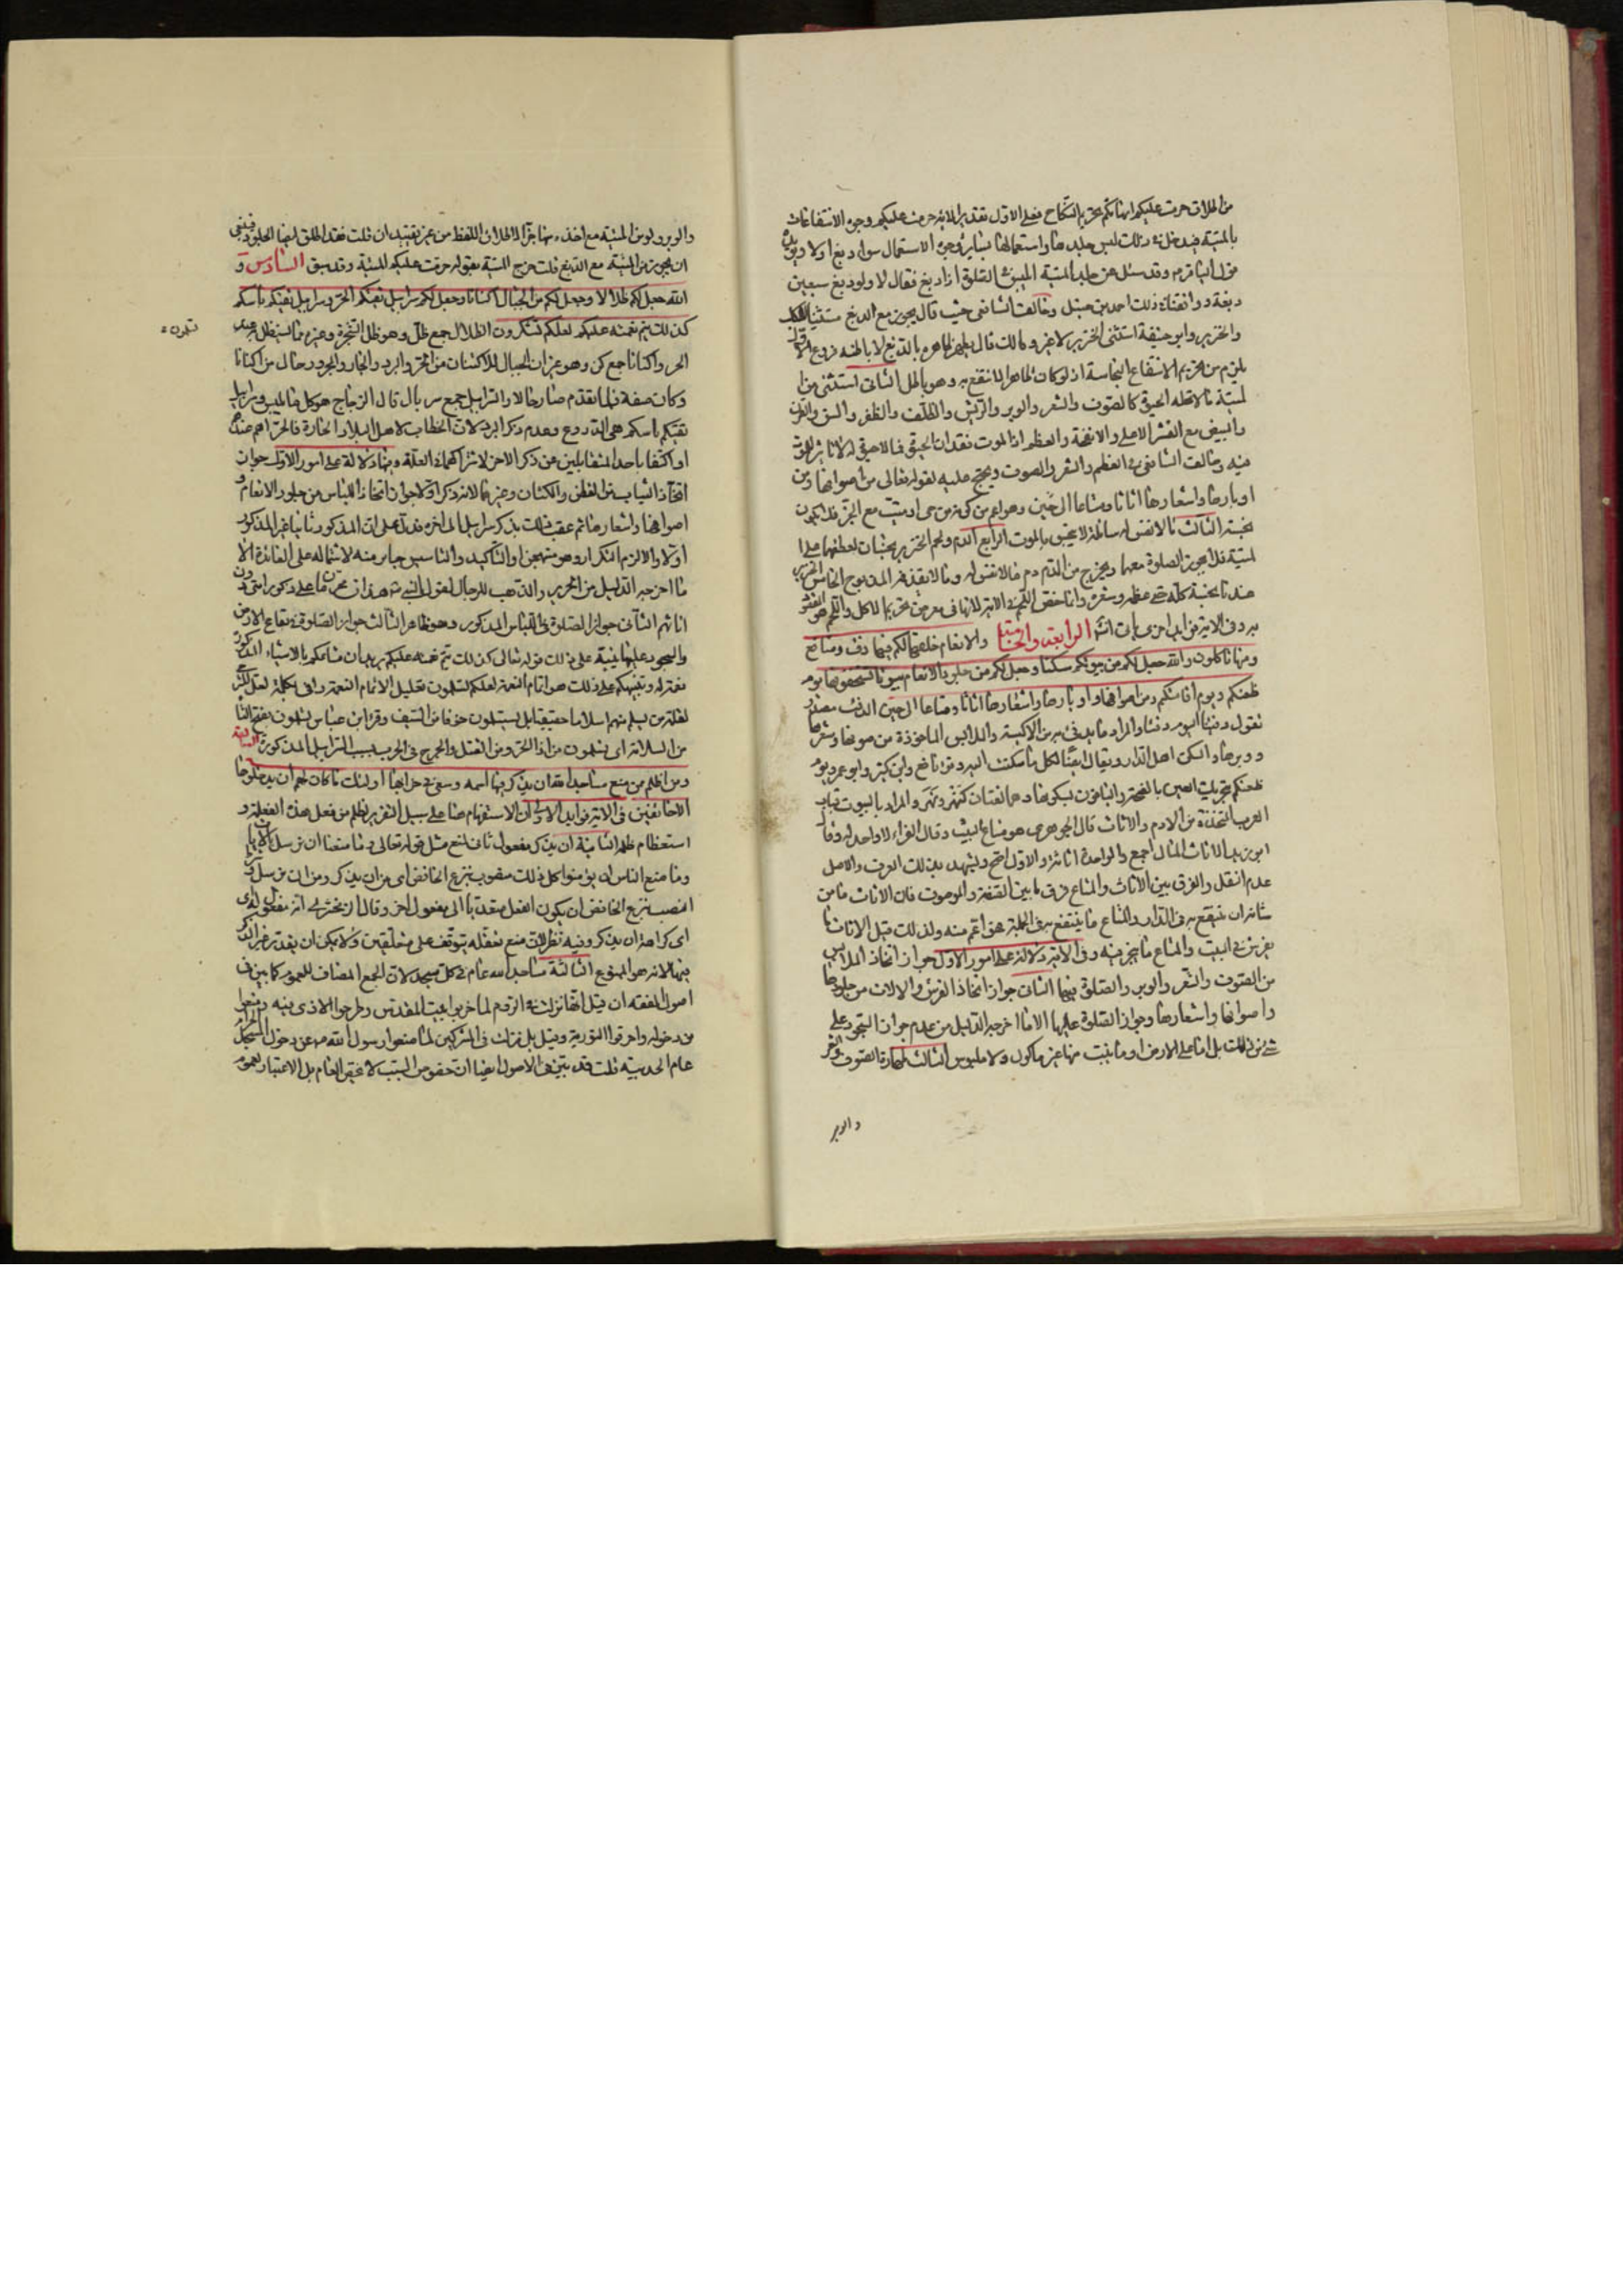 من اطلاق حرمت عليكم امهاتكم تحريم النكاح فعلى الاول تقدير الاية حرمت عليكم وجوه الانتفاعات
بالميتة فيدخل في ذلك لبس جلدها واستعمالها بساير وجوه الاستعمال سواء دبغ اولا ويؤيده
قول الباقر م وقد سئل عن جلد الميتة ايلبس في الصلوة اذا دبغ فقال لا ولو دبغ سبعين
دبغة ووافقنا في ذلك احمد بن حنبل وخالف الشافعى حيث قال يجوز مع الدبغ مستثنيا الكلب
والخنزير وابو حنيفة استثنى الخنزير لا غير ومالك قال يطهر ظاهره بالدبغ لا باطنه فروع الاول
يلزم من تحريم الانتفاع النجاسة اذ لو كان طاهرا لانتفع به وهو باطل الثانى استثنى من
الميتة ما لا تحله الحيوة كالصوف والشعر والوبر والريش والظلف والظفر والسن والقرن
والبيض مع القشر الاعلى والانفحة والعظم اذ الموت فقدان الحيوة فما لا حيوة له لا تاثير للموت
فيه وخالف الشافعى في العظم والشعر والصوف ويحتج عليه بقوله تعالى من اصوافها ومن
اوبارها واشعارها اثاثا ومتاعا الى حين وهو اعم من كونه من حى او ميت مع الجز فلا يكون
نجسة الثالث ما لا نفس له سائلة لا ينجس بالموت الرابع الدم ولحم الخنزير نجسان لعطفهما على
الميتة فلا يجوز الصلوة معهما ويخرج من الدم دم ما لا نفس له وما لا يقذفه المذبوح الخامس الخنزير
عندنا نجسة كله حتى عظمه وشعره وانما خص اللحم في الاية لانها في معرض تحريم الاكل واللحم هو المقصود
به وفي الاية فوايد اخرى يأتى انش الرابعة والخامسة والانعام خلقها لكم فيها دفء ومنافع
ومنها تاكلون والله جعل لكم من بيوتكم سكنا وجعل لكم من جلود الانعام بيوتا تستخفونها يوم
ظعنكم ويوم اقامتكم ومن اصوافها واوبارها واشعارها اثاثا ومتاعا الى حين الدفء مصدر
تقول دفئا اليوم دفئا والمراد ما يدفئ به من الاكسية والملابس الماخوذة من صوفها وشعرها
ووبرها والسكن اهل الدار ويقال ايضا لكل ما سكنت اليه وقرء نافع وابن كثير وابو عمرو يوم
ظعنكم بتحريك العين بالفتحة والباقون بسكونها وهما لغتان كنهر ونهر والمراد بالبيوت قباب
العرب المتخذة من الادم والاثاث قال الجوهرى هو متاع البيت وقال الفراء لا واحد له وقال
ابو زيد الاثاث المال اجمع والواحدة اثاثة والاول اصح ويشهد بذلك العرف والاصل
عدم النقل والفرق بين الاثاث والمتاع فرق ما بين الصفة والموصوف فان الاثاث ما من
شانه ان ينتفع به في الدار والمتاع ما ينتفع به في الجملة فهو اعم منه ولذلك قيل الاثاث ما
يفرش في البيت والمتاع ما يتجر فيه وفي الاية دلالة على امور الاول جواز اتخاذ الملابس
من الصوف والشعر والوبر والصلوة فيها الثانى جواز اتخاذ الفرش والالات من جلودها
واصوافها واشعارها وجواز الصلوة عليها الا ما اخرجه الدليل من عدم جواز السجود على
شئ من ذلك بل اما على الارض او ما ينبت منها غير ماكول ولا ملبوس الثالث طهارة الصوف والشعر
والوبر
والوبر ولو من الميتة مع اخذه منها جزا لاطلاق اللفظ من غير تقييد ان قلت فقد اطلق ايضا الجلود فينبغى
ان يجوز من الميتة مع الدبغ قلت خرج الميتة بقوله حرمت عليكم الميتة وقد سبق السادس و
الله جعل لكم مما خلق ظلالا وجعل لكم من الجبال اكنانا وجعل لكم سرابيل تقيكم الحر وسرابيل تقيكم باسكم
كذلك يتم نعمته عليكم لعلكم تشكرون الظلال جمع ظل وهو ظل الشجرة وغيره مما يستظل به عند
تسلمون
الحر واكنانا جمع كن وهو غيران الجبال للاكتنان من الحر والبرد والجار والمجرور حال من اكنانا
وكان صفة فلما تقدم صار حالا والسرابيل جمع سربال قال الزجاج هو كل ما لبس وسرابيل
تقيكم باسكم هى الدروع وعدم ذكر البرد لان الخطاب لاهل البلاد الحارة فالحر اهم عندهم
او اكتفا باحد المتقابلين عن ذكر الاخر لاشتراكهما في العلة وفيها دلالة على امور الاول جواز
اتخاذ الثياب من القطن والكتان وغيرهما لانه ذكر اولا جواز اتخاذ اللباس من جلود الانعام و
اصوافها واشعارها ثم عقب ذلك بذكر سرابيل الى اخره فدل على ان المذكور ثانيا غير المذكور
اولا والا لزم التكرار وهو مستهجن والتاكيد والتاسيس خير منه لاشتماله على الفائدة الا
ما اخرجه الدليل من الحرير والذهب للرجال لقول النبى ص هذان محرمان على ذكور امتى دون
اناثهم الثانى جواز الصلوة في اللباس المذكور وهو ظاهر الثالث جواز الصلوة في بقاع الارض
والسجود عليها ينبه على ذلك قوله تعالى كذلك يتم نعمته عليكم يريد ان مننكم بالاشياء المذكورة
نعمة له وتنبيهكم على ذلك هو اتمام النعمة لعلكم تسلمون تعليل لاتمام النعمة واتى بكلمة لعل
لقلة من يسلم منهم اسلاما حقيقيا بل يستسلمون خوفا من السيف وقرء ابن عباس تسلمون بفتح التا
من السلامة اى تسلمون من اذا الحر ومن القتل والجرح في الحرب بسبب السرابيل المذكورة السابعة
ومن اظلم ممن منع مساجد الله ان يذكر فيها اسمه وسعى في خرابها اولئك ما كان لهم ان يدخلوها
الا خائفين في الاية فوايد الاولى ان الاستفهام هنا على سبيل التقرير لظلم من فعل هذه الفعلة و
استعظام ظلمه الثانية ان يذكر مفعول ثان لمنع مثل قوله تعالى وما منعنا ان نرسل بالايات
وما منع الناس ان يؤمنوا كل ذلك منصوب بنزع الخافض اى من ان يذكر ومن ان نرسل
النصب بنزع الخافض ان يكون الفعل متعديا الى مفعول اخر وقال الزمخشرى انه مفعول له
اى كراهة ان يذكر وفيه نظر لان منع تعقله يتوقف على متعلقين ولا يمكن ان يقدر غير الذكر
فيها لانه هو الممنوع الثالثة مساجد الله عام في كل مسجد لان الجمع المضاف للعموم كما بين في
اصول الفقه ان قيل انها نزلت في الروم لما خربوا بيت المقدس وطرحوا الاذى فيه ومنعوا
من دخوله واحرقوا التورية وقيل بل نزلت في المشركين لما منعوا رسول الله ص عن دخول المسجد الحرام
عام الحديبية قلت قد تبين في الاصول ايضا ان خصوص السبب لا يخص العام بل الاعتبار بعموم